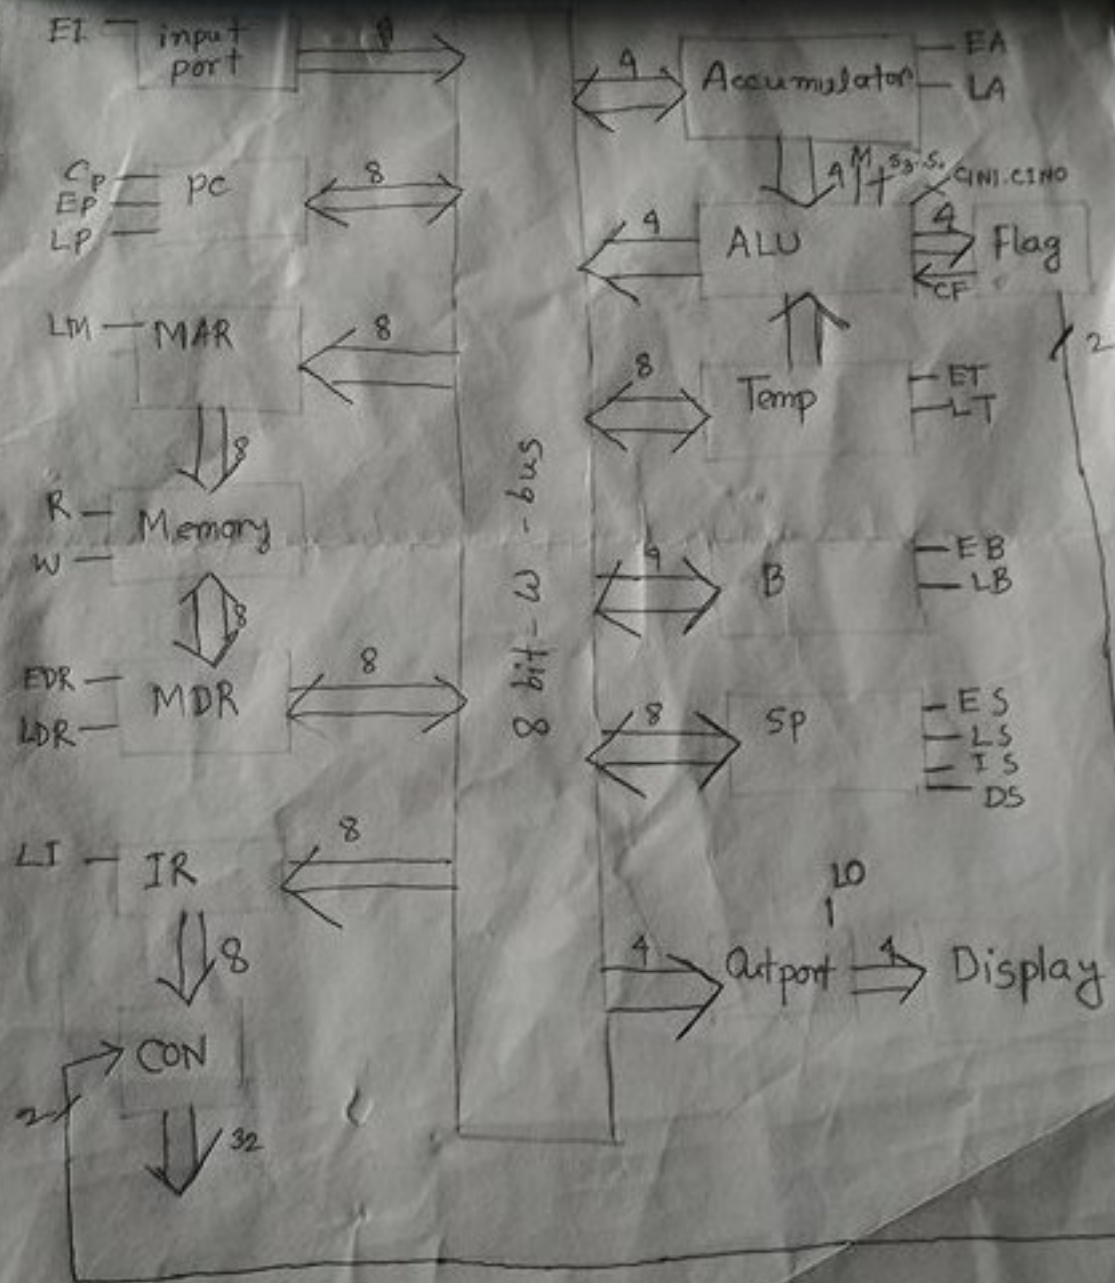 EI
input
port
8
Cp
EP
LP
PC
8
LM
MAR
8
8
R
W
Memory
8
EDR
LDR
MDR
8
LI
IR
8
8
CON
2
32
8 bit-W-bus
4
Accumulator
EA
LA
4
M
CIN1.CIN0
4
ALU
4
Flag
CF
2
8
Temp
ET
LT
4
B
EB
LB
8
SP
ES
LS
IS
DS
LO
4
Outport
4
Display